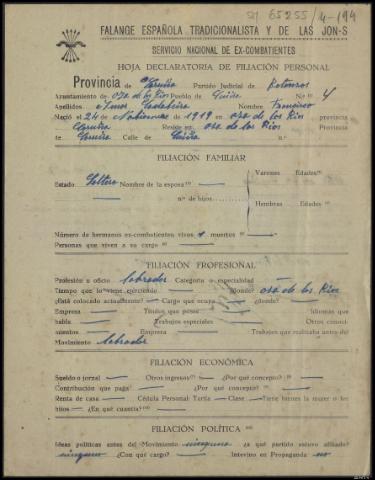 65255/4-194
FALANGE ESPAÑOLA TRADICIONALISTA Y DE LAS JON-S
SERVICIO NACIONAL DE EX-COMBATIENTES
HOJA DECLARATORIA DE FILIACIÓN PERSONAL
Provincia de Coruña Partido Judicial de Betanzos
Ayuntamiento de oza de los Ríos Pueblo de N.º 4
Apellidos Nombre Francisco
Nació el 24 de Noviembre de 1919 en oza de los Ríos provincia
Coruña Reside en oza de los Ríos Provincia
de Coruña Calle de n.º
FILIACIÓN FAMILIAR
Varones Edades
Estado Soltero Nombre de la esposa —
n.º de hijos
Hembras Edades
Número de hermanos ex-combatientes vivos muertos —
Personas que viven a su cargo —
FILIACIÓN PROFESIONAL
Profesión u oficio labrador Categoría o especialidad —
Tiempo que lo viene ejerciendo — ¿dónde? oza de los Ríos
¿Está colocado actualmente? — Cargo que ocupa — ¿dónde? —
Empresa — Títulos que posee — Idiomas que
habla — Trabajos especiales — Otros conoci-
mientos — Empresa — Trabajos que realizaba antes del
Movimiento labrador
FILIACIÓN ECONÓMICA
Sueldo o jornal — Otros ingresos — ¿Por qué concepto? —
Contribución que paga — ¿Por qué concepto? —
Renta de casa — Cédula Personal: Tarifa — Clase — Tiene bienes la mujer o los
hijos — ¿En qué cuantía?
FILIACIÓN POLÍTICA
Ideas políticas antes del Movimiento ninguna ¿a qué partido estuvo afiliado?
ninguno ¿Con qué cargo? — Intervino en Propaganda no